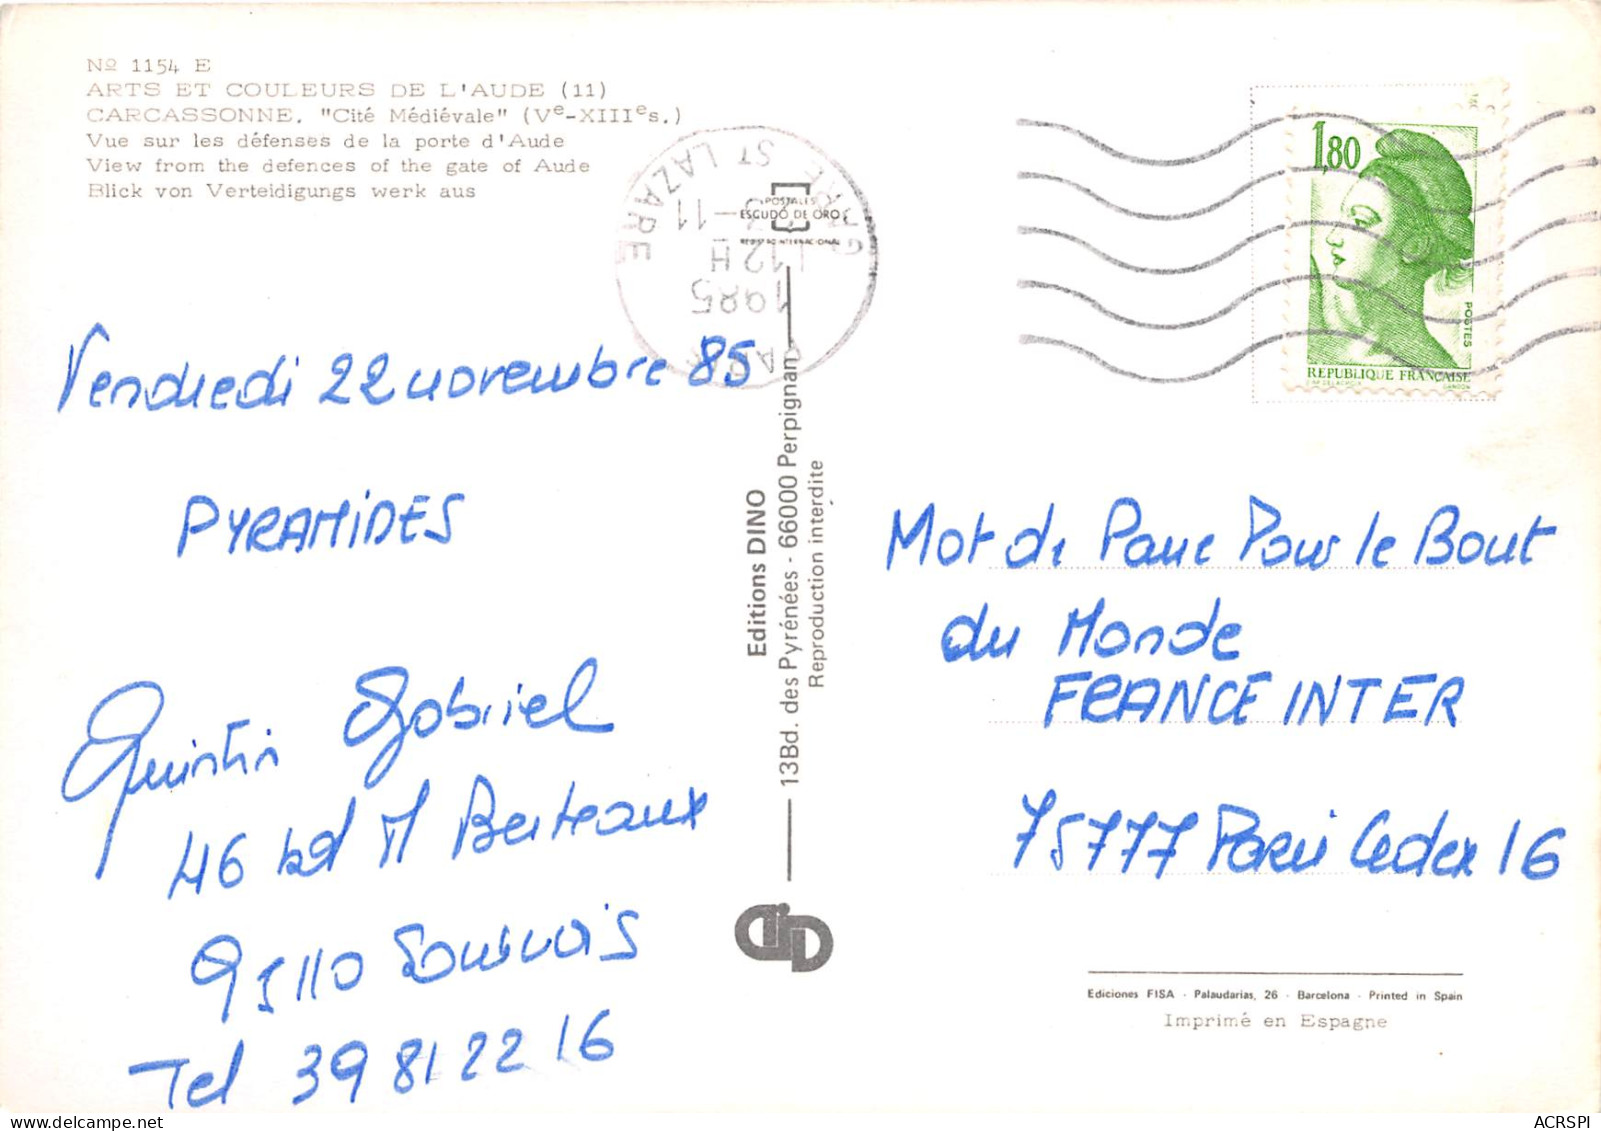 Nº 1154 E
ARTS ET COULEURS DE L'AUDE (11)
CARCASSONNE. "Cité Médiévale" (Ve-XIIIes.)
Vue sur les défenses de la porte d'Aude
View from the defences of the gate of Aude
Blick von Verteidigungs werk aus
POSTALES
ESCUDO DE ORO
REGISTRO INTERNACIONAL
GARE ST LAZARE
12 H
-11
1985
PARIS
1,80
POSTES
REPUBLIQUE FRANÇAISE
GANDON
Vendredi 22 novembre 85
PYRAMIDES
Quintin Gabriel
46 bd M Berteaux
95110 Sannois
Tel 39 81 22 16
Editions DINO
13Bd. des Pyrénées - 66000 Perpignan
Reproduction interdite
DiD
Mot de Passe Pour le Bout
du Monde
FRANCE INTER
75777 Paris Cedex 16
Ediciones FISA - Palaudarias, 26 - Barcelona - Printed in Spain
Imprimé en Espagne
ACRSPI